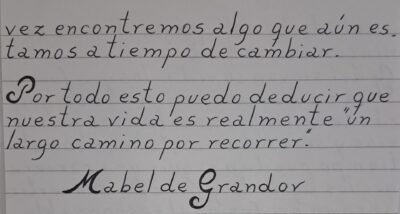 vez encontremos algo que aún es.
tamos a tiempo de cambiar.
Por todo esto puedo deducir que
nuestra vida es realmente "un
largo camino por recorrer."
Mabel de Grandor